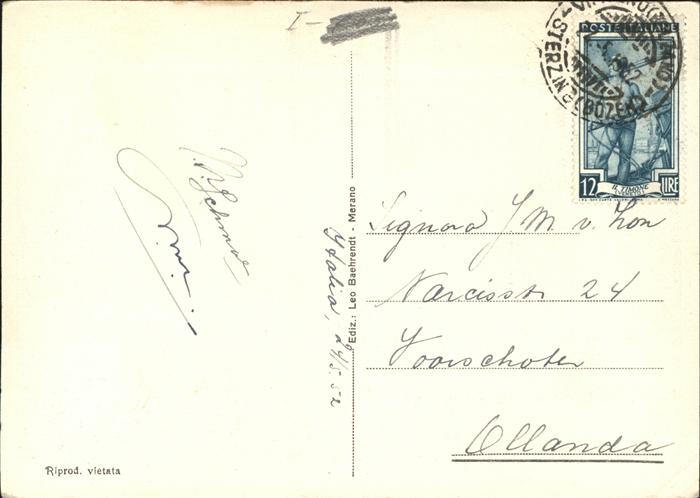 I -
POSTE ITALIANE
STERZI
(BOZEN)
12 IL TIMONE LIRE
Signora J. M. v. Zon
Narcisstr 24
Voorschoten
Ollanda
Ediz.: Leo Baehrendt - Merano
Italia, 24/5.52
Riprod. vietata